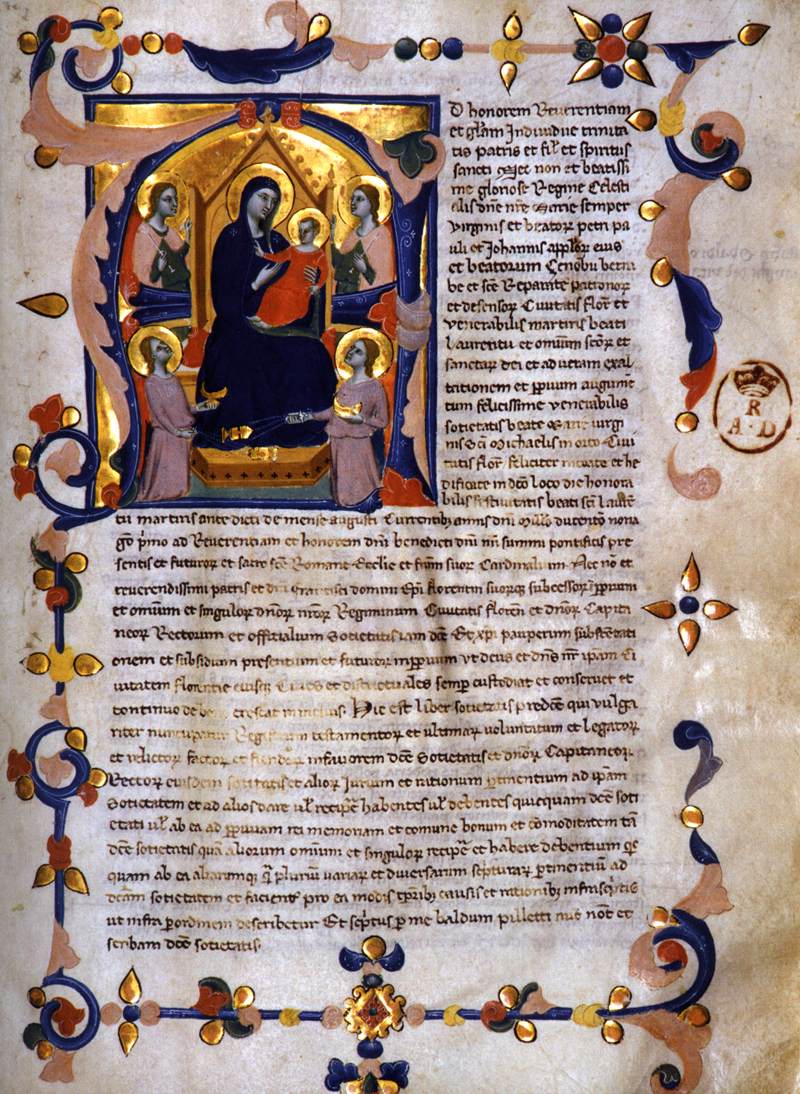 D honorem Reuerentiam
et gl̄am Indiuidue trinita
tis patris et fil̄ et spiritus
sancti Nec non et beatissi
me gloriose Regine Celesti
alis dn̄e nr̄e Marie semper
Virginis et beatoꝝ petri pa
uli et Johannis appl̄oꝝ eius
et beatorum Cenobii
be et sc̄e Reparate patronoꝝ
et defensoꝝ Ciuitatis flor̄ et
venerabilis martiris beati
Laurentii et omnium sc̄oꝝ et
sanctaꝝ dei et ad uetam exal
tationem et ꝑpium augume
tum felicissime venerabilis
societatis beate Marie uirgi
nis Sc̄i Michaelis in orto Ciui
tatis flor̄ feliciter incoate et he
dificate in dc̄o loco die honora
bilis festiuitatis beati sc̄i Laure
tii martiris ante dicti de mense augusti Currentibꝫ annis dn̄i Mill̄o ducento nona
gō pͥmo ad Reuerentiam et honorem dn̄i benedicti dn̄i nr̄i summi pontificis pre
sentis et futuroꝝ et sacre sc̄e Romane Ecclie et fr̄um suoꝝ Cardinalium Nec nō et
reuerendissimi patris et dn̄i domini Ep̄i florentin̄ suorūqꝫ subcessoꝝ ꝑpium
et omnium et singuloꝝ dn̄oꝝ nr̄oꝝ Regiminum Ciuitatis floren̄ et dn̄oꝝ Capita
neoꝝ Rectorum et offitialium Societatis iam dc̄e Et xp̄i pauperum substentati
onem et subsidium presentium et futuroꝝ in ꝑpium vt deus et dn̄s nr̄ ipam Ci
uitatem florentie eiusqꝫ Ciues et districtuales semꝑ custodiat et conseruet et
continuo de crescat in melius. Hic est liber societatis predc̄e qui vulga
riter nuncupatur testamentoꝝ et ultimaꝝ uoluntatum et legatoꝝ
et relictoꝝ factoꝝ et in fauorem dc̄e Societatis et dn̄oꝝ Capitaneoꝝ
Rectoꝝ eiusdem societatis et alioꝝ Jurium et rationum ꝑtinentium ad ipam
Societatem et ad alios dare ul̄ reciꝑe habentes ul̄ debentes quicquam dc̄e soti
etati ul̄ ab ea ad ꝑpetuam rei memoriam et comune bonum et cōmoditatem tā
dc̄e sotietatis quā aliorum omnium et singuloꝝ reciꝑe et habere debentium
quam ab ea pluriū variaꝝ et diuersarum scpturaꝝ ꝑtinentiū ad
dc̄am sotietatem et pro ea modis tꝑribꝫ causis et rationibꝫ infrascͥptis
ut infra ꝑ ordinem describetur Et scͥptus ꝑ me baldum pilletti nunc not̄ et
scribam dc̄e sotietatis.
R
A D